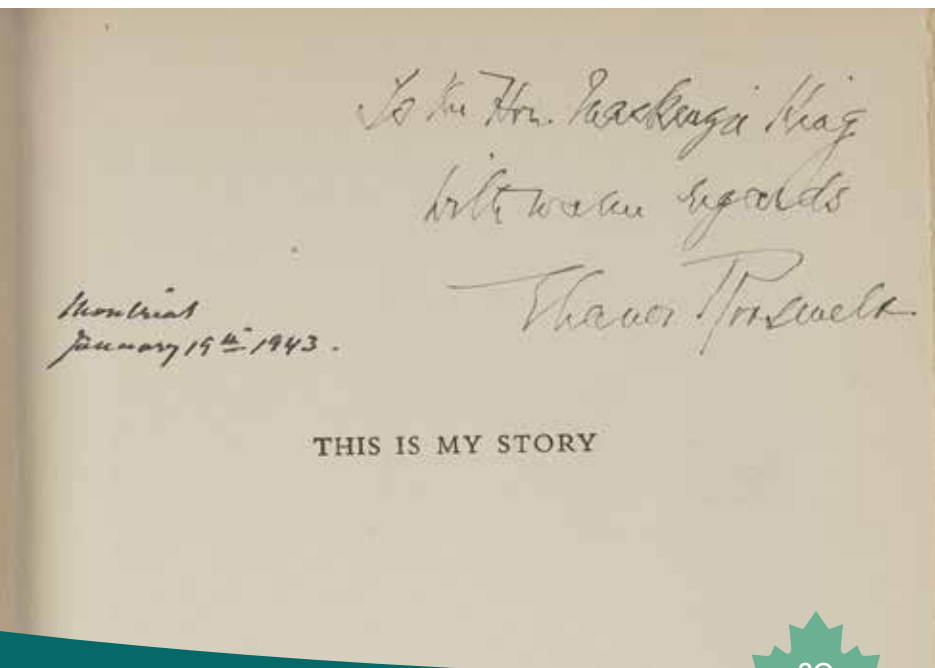 To the Hon. Mackenzie King
with warm regards
Eleanor Roosevelt
Montreal
January 19th 1943.
THIS IS MY STORY